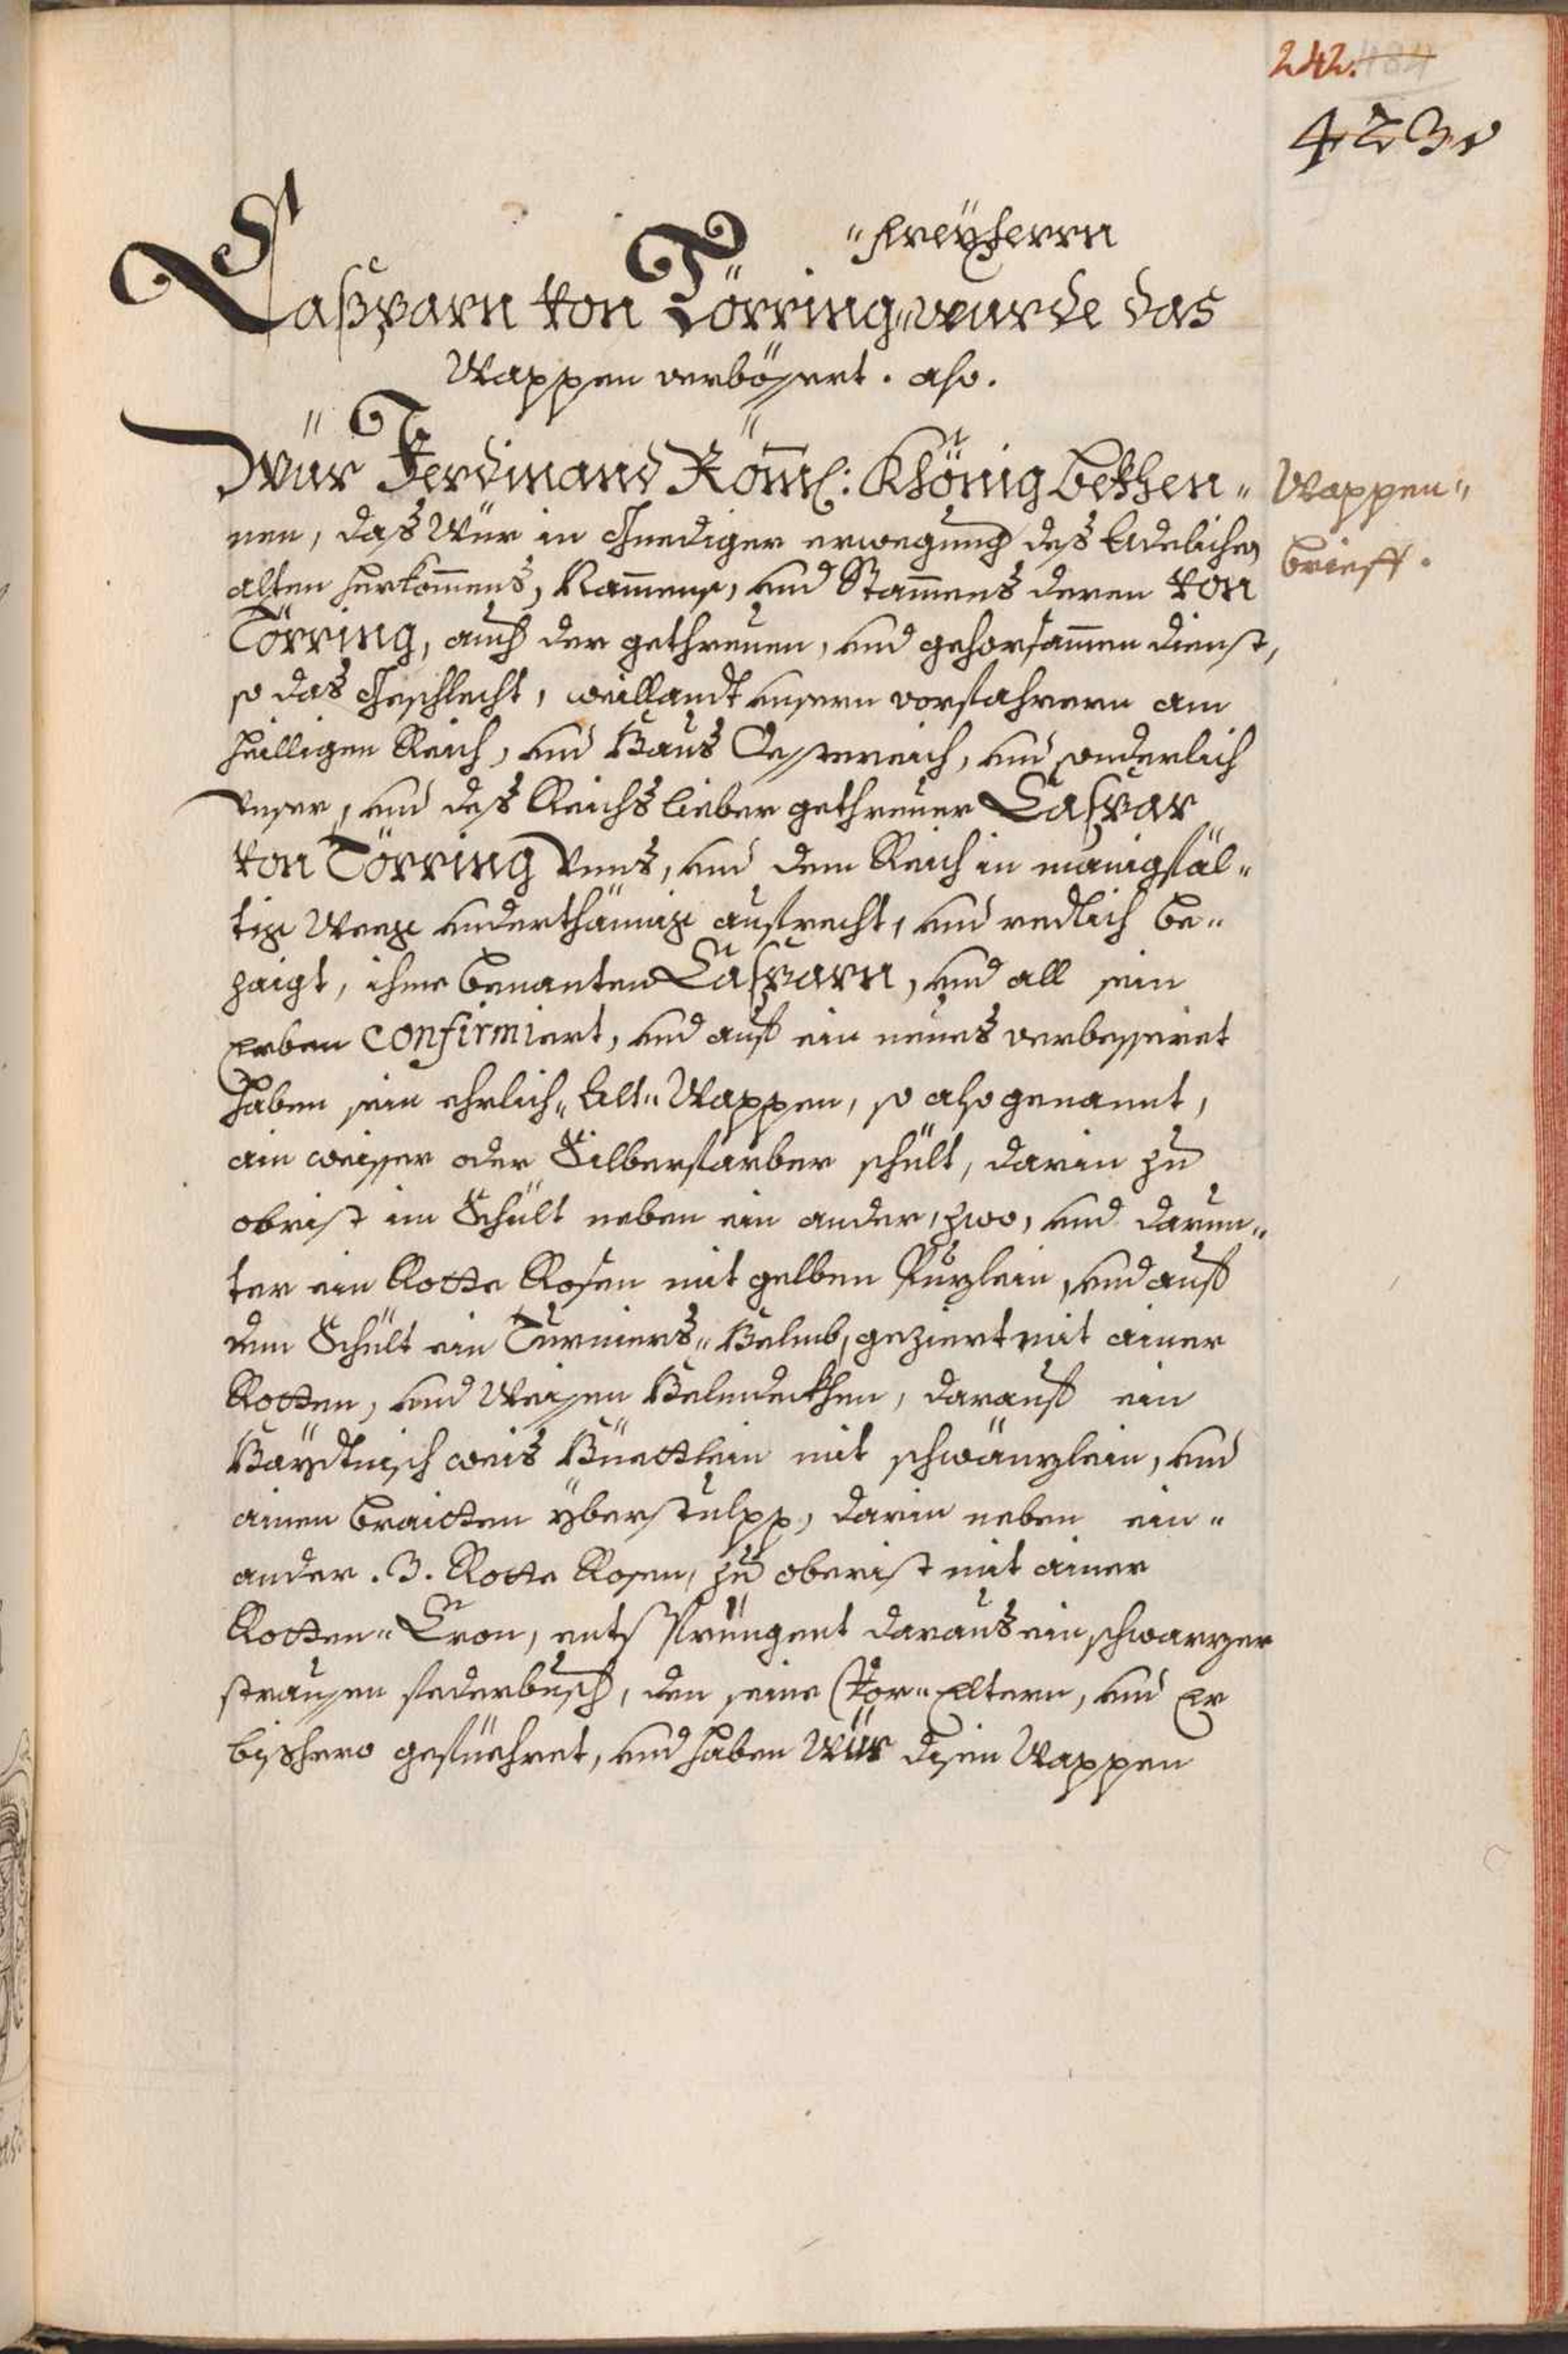 242. 484
423.
"freÿherrn
Casparn von Törring wurde das
Wappen verbössert. also.
Wür Ferdinand Röml: Khönig bekhen-
nen, das Wür in Gnediger erwegung des Adelichen
alten herkommens, Nammens, und Stammens deren von
Törring, auch der gethreuen, und gehorsammen dienst,
so das Geschlecht, weillandt unsern vorfahrern am
heilligen Reich, und Haus Oesstereich, und sonderlich
Unser, und des Reichs lieber gethreuer Caspar
von Törring Unns, und dem Reich in manigfäl-
tig Weeg underthänig aufrecht, und redlich be-
zaigt, ihme benanten Casparn, und all sein
Erben confirmiert, und auf ein neues verbesseret
haben sein ehrlich- Alt- Wappen, so also genannt,
ain weisser oder Silberfarber schült, darin zu
obrist im Schült neben ein ander, zwo, und darun-
ter ein Rotte Rosen mit gelben Puzlein, und auf
dem Schült ein Turniers- Helmb, geziert mit ainer
Rotten, und Weisen Helmdeckhen, darauf ein
Haydtnisch weis Hüettlein mit schwänzlein, und
ainen braitten yberstulpp, darin neben ein-
ander .3. Rotte Rosen, zu oberist mit ainer
Rotten- Cron, entspringent daraus ein schwarzer
straussen federbusch, den seine Vor- Eltern, und Er
bishero gefüehret, und haben Wür disem Wappen
Wappen-
brieff.